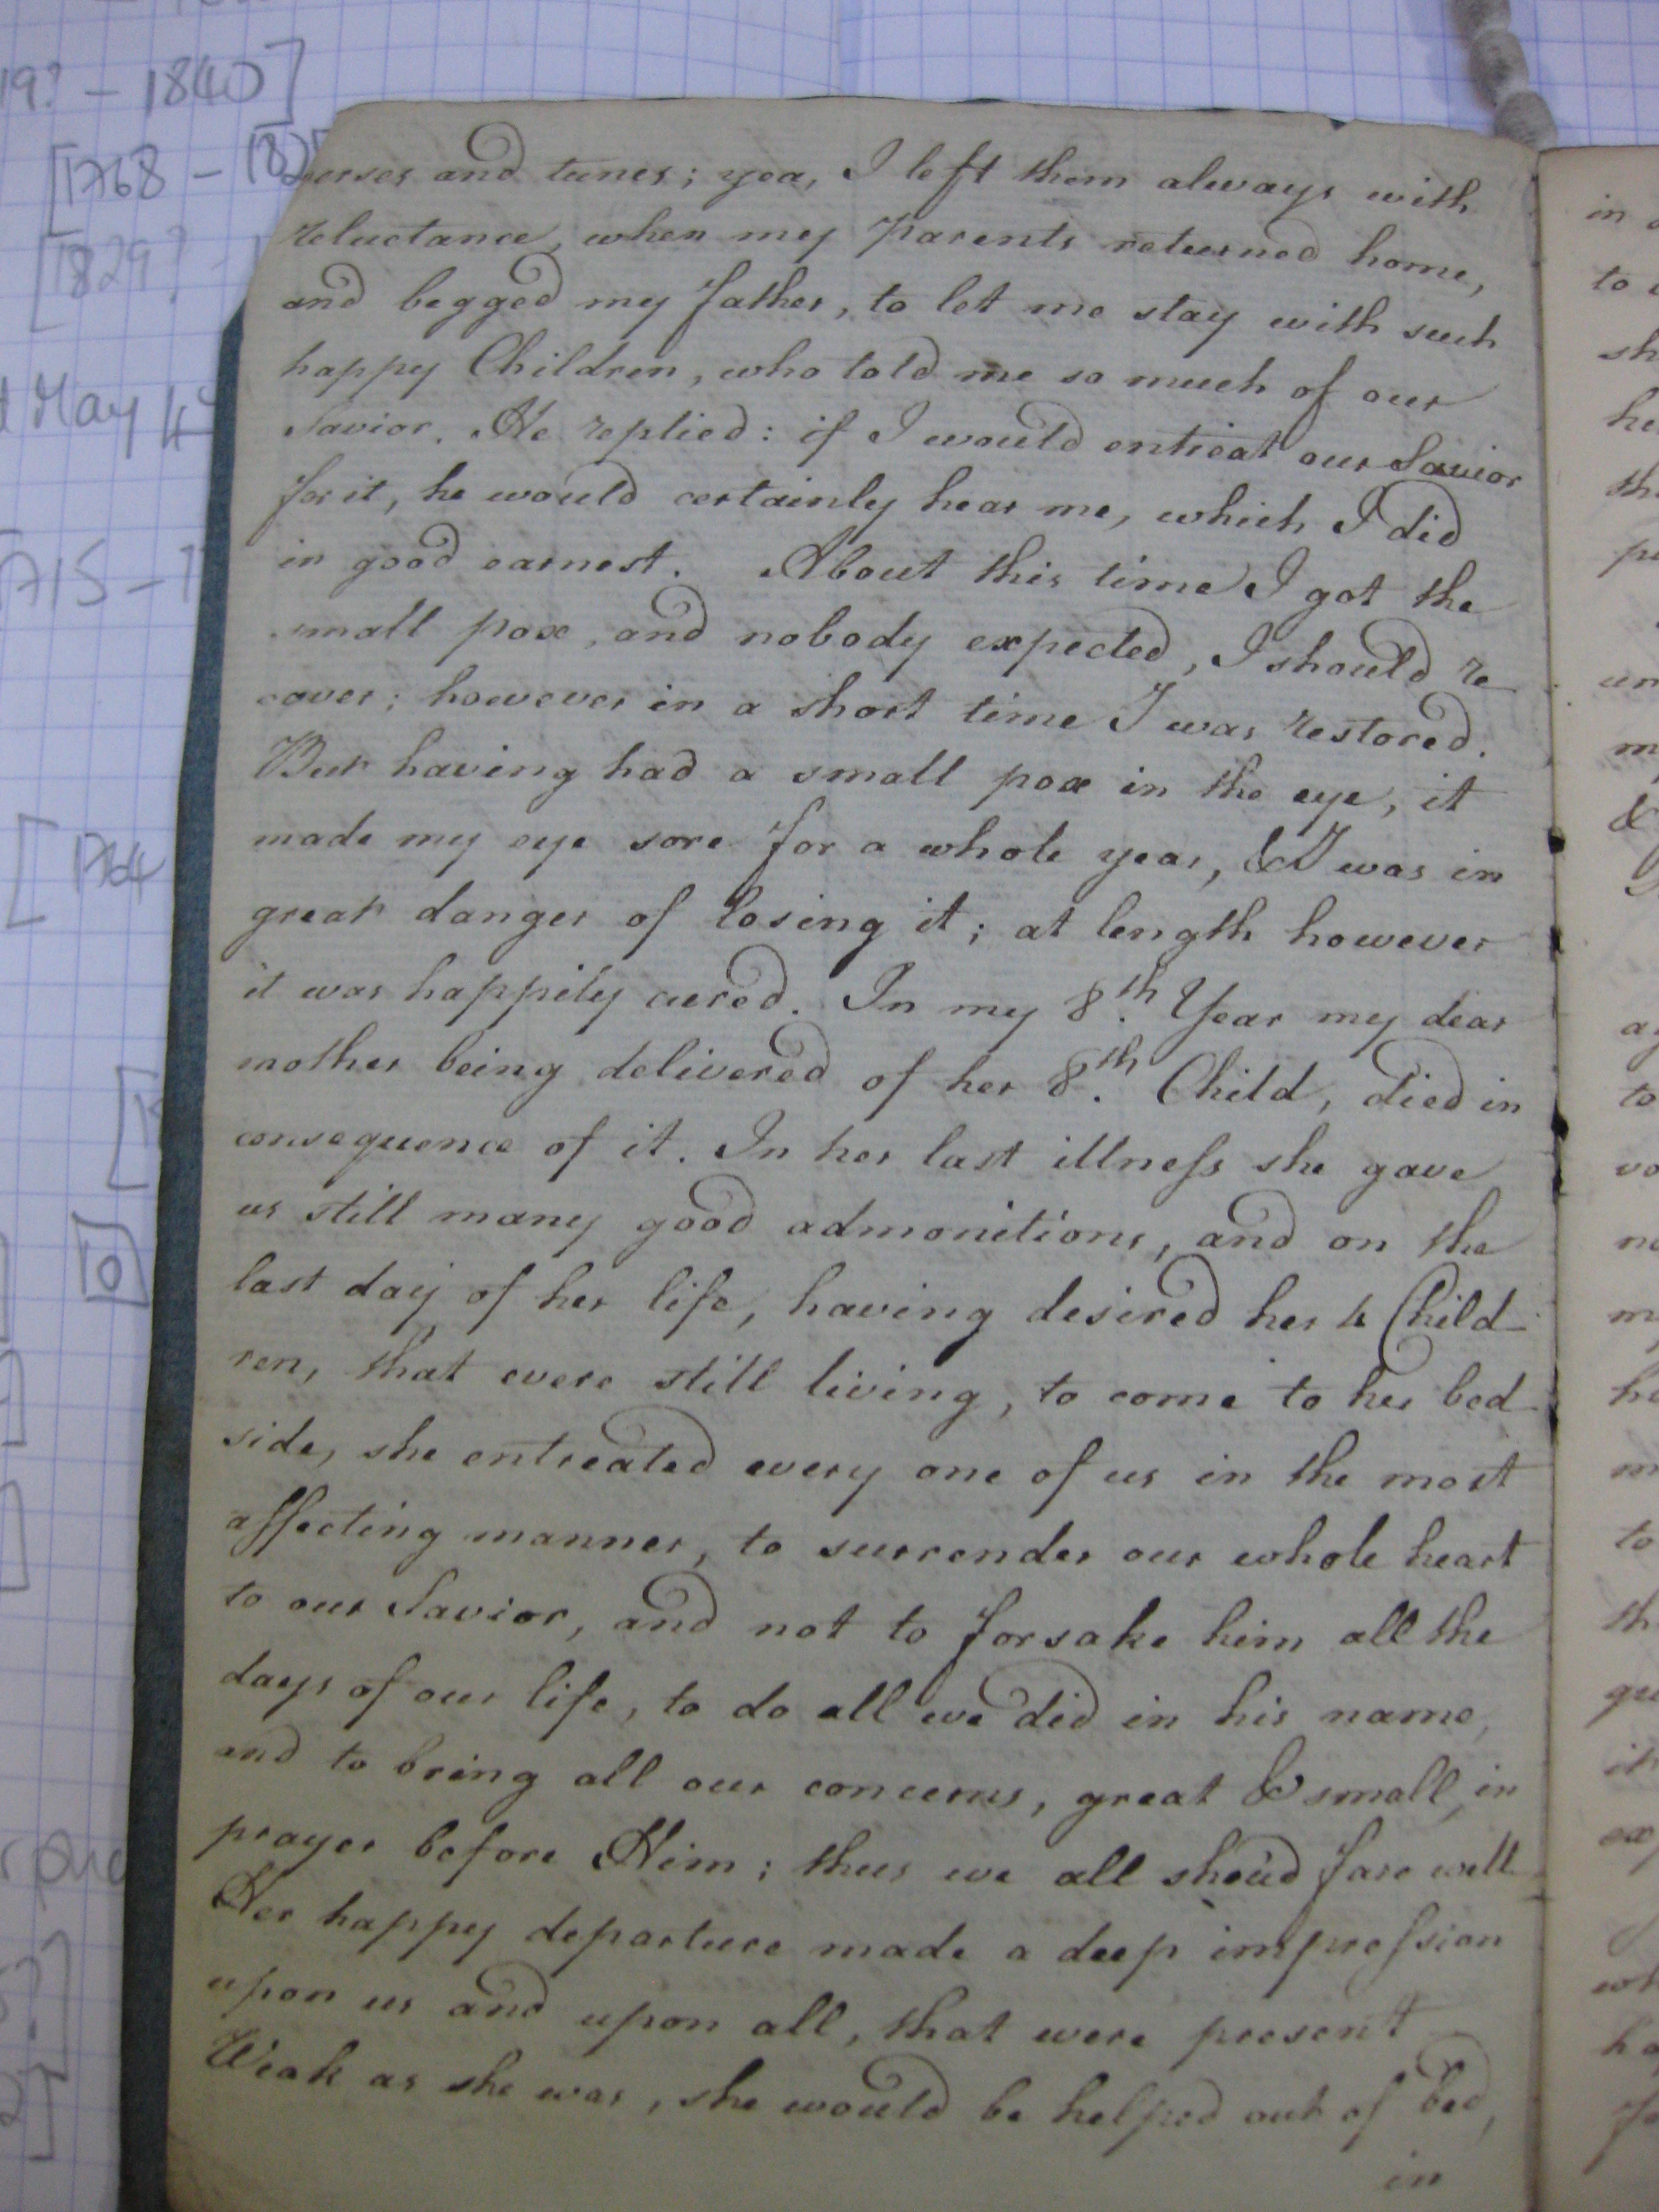 verses and tunes; yea, I left them always with
reluctance, when my Parents returned home,
and begged my father, to let me stay with such
happy Children, who told me so much of our
Savior. He replied: if I would entreat our Savior
for it, he would certainly hear me, which I did
in good earnest. About this time I got the
small pox, and nobody expected, I should re
cover; however in a short time I was restored.
But having had a small pox in the eye, it
made my eye sore for a whole year, & I was in
great danger of losing it; at length however
it was happily cured. In my 8th. Year my dear
mother being delivered of her 8th. Child, died in
consequence of it. In her last illneſs she gave
us still many good admonitions, and on the
last day of her life, having desired her 4 Child-
ren, that were still living, to come to her bed-
side, she entreated every one of us in the most
affecting manner, to surrender our whole heart
to our Savior, and not to forsake him all the
days of our life, to do all we did in his name,
and to bring all our concerns, great & small, in
prayer before Him; thus we all shou'd fare well
Her happy departure made a deep impreſsion
upon us and upon all, that were present
Weak as she was, she would be helped out of bed,
in
19? - 1840]
[1768 - 182
[1829?
May
1715 - 1
[1764
in
to
sh
he
th
un
m
&
to
no
m
he
m
to
th
it
wh